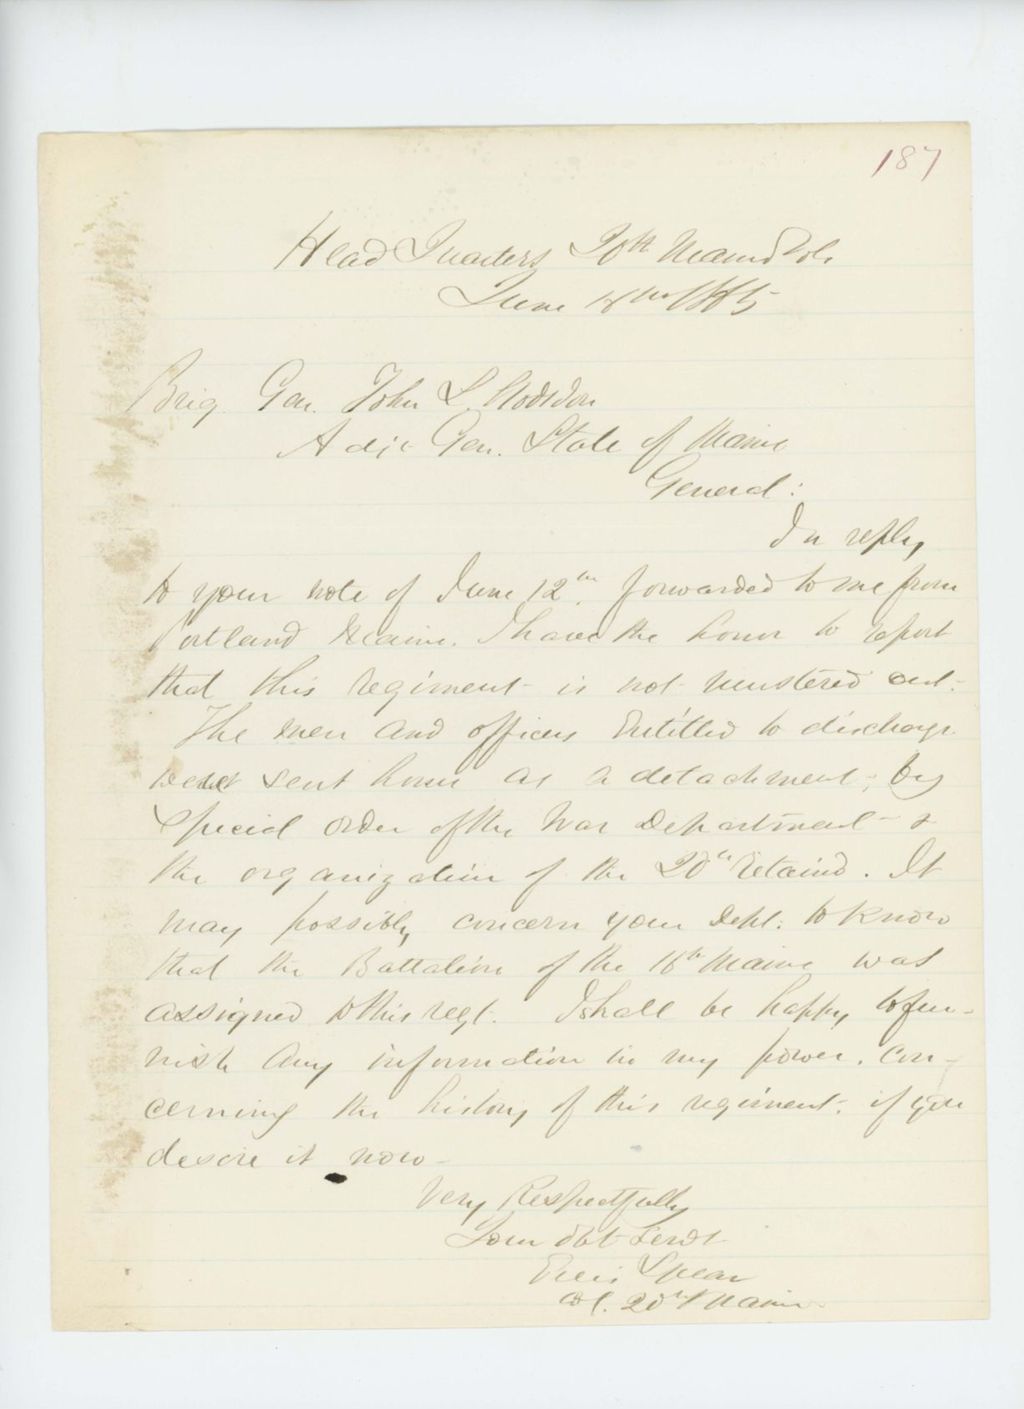 187
Head Quarters 20th Maine Vols
June 18th 1865
Brig. Gen. John L. Hodsdon
Adjt Gen. State of Maine
General:
In reply
to your note of June 12th. forwarded to me from
Portland Maine. I have the honor to report
that this regiment is not mustered out.
The men and officers Entitled to discharge
were sent home as a detachment, by
special order of the War Department &
the organization of the 20th retained. It
may possibly concern your Dept. to know
that the Battalion of the 16th Maine was
assigned to this regt. I shall be happy to fur-
nish any information in my power, con-
cerning the history of this regiment, if you
desire it now
Very Respectfully
Your Obt Servt
Ellis Spear
Col. 20th Maine